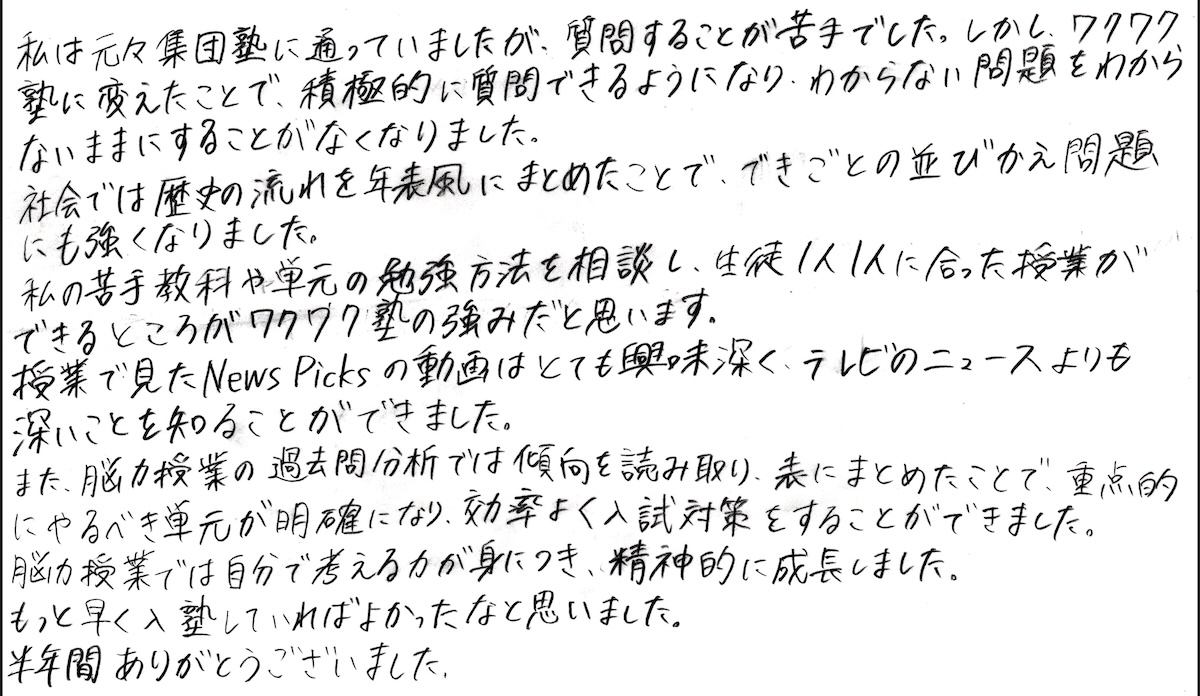 私は元々集団塾に通っていましたが、質問することが苦手でした。しかし、ワクワク
塾に変えたことで、積極的に質問できるようになり、わからない問題をわから
ないままにすることがなくなりました。
社会では歴史の流れを年表風にまとめたことで、できごとの並びかえ問題
にも強くなりました。
私の苦手教科や単元の勉強方法を相談し、生徒1人1人に合った授業が
できるところがワクワク塾の強みだと思います。
授業で見たNews Picksの動画はとても興味深く、テレビのニュースよりも
深いことを知ることができました。
また、脳力授業の過去問分析では傾向を読み取り、表にまとめたことで、重点的
にやるべき単元が明確になり、効率よく入試対策をすることができました。
脳力授業では自分で考える力が身につき、精神的に成長しました。
もっと早く入塾していればよかったなと思いました。
半年間ありがとうございました.